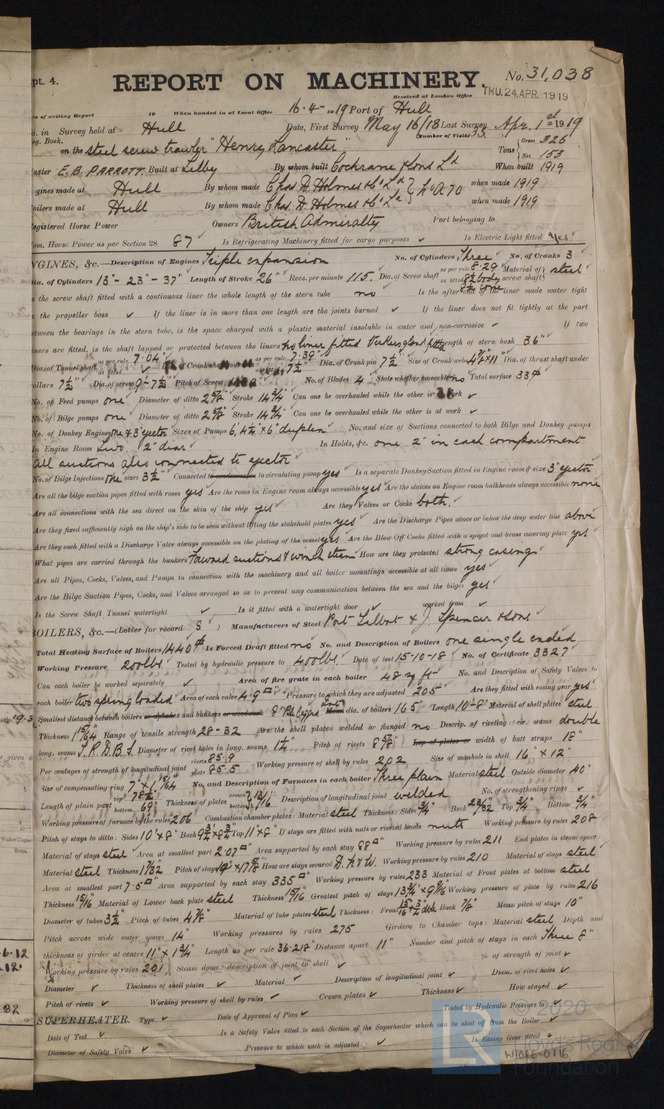 pt. 4.
REPORT ON MACHINERY.
No. 31,038
Received at London Office
THU. 24. APR. 1919
te of writing Report 19 When handed in at Local Office 16-4-1919 Port of Hull
o. in Survey held at Hull Date, First Survey May 16/18 Last Survey Apr. 1st 1919
g. Book. (Number of Visits 33
on the steel screw trawler "Henry Lancaster" Tons Gross 326 Net 153
aster E.B. PARROTT. Built at Selby By whom built Cochrane & Sons Ld When built 1919
ngines made at Hull By whom made Chas. D. Holmes & Co Ld No. 1170 when made 1919
oilers made at Hull By whom made Chas. D. Holmes & Co Ld when made 1919
egistered Horse Power Owners British Admiralty Port belonging to
om. Horse Power as per Section 28 87 Is Refrigerating Machinery fitted for cargo purposes ✓ Is Electric Light fitted yes
NGINES, &c.—Description of Engines Triple expansion No. of Cylinders Three No. of Cranks 3
ia. of Cylinders 13"-23"-37" Length of Stroke 26" Revs. per minute 115. Dia. of Screw shaft as per rule 8.29 Material of screw shaft steel
the screw shaft fitted with a continuous liner the whole length of the stern tube no Is the after end of the liner made water tight
the propeller boss ✓ If the liner is in more than one length are the joints burned ✓ If the liner does not fit tightly at the part
etween the bearings in the stern tube, is the space charged with a plastic material insoluble in water and non-corrosive ✓ If two
iners are fitted, is the shaft lapped or protected between the liners no liner fitted Length of stern bush 36"
Dia. of Tunnel shaft as per rule 7.04 Dia. of Crank shaft journals as per rule 7.39 7½" Dia. of Crank pin 7½" Size of Crank webs 4⅞"x11" Dia. of thrust shaft under
ollars 7½" Dia. of screw 9-7½ Pitch of Screw No. of Blades 4 State whether moveable no Total surface 33 ft
No. of Feed pumps one Diameter of ditto 2⅝" Stroke 14¾" Can one be overhauled while the other is at work ✓
No. of Bilge pumps one Diameter of ditto 2⅝" Stroke 14¾" Can one be overhauled while the other is at work ✓
No. of Donkey Engines one & 3" ejector Sizes of Pumps 6, 4½ x 6" duplex No. and size of Suctions connected to both Bilge and Donkey pumps
In Engine Room two, 2" diar In Holds, &c. one 2" in each compartment
All suctions also connected to ejector
No. of Bilge Injections one sizes 3½" Connected to circulating pump yes Is a separate Donkey Suction fitted in Engine room & size 3" ejector
Are all the bilge suction pipes fitted with roses yes Are the roses in Engine room always accessible yes Are the sluices on Engine room bulkheads always accessible none
Are all connections with the sea direct on the skin of the ship yes Are they Valves or Cocks both.
Are they fixed sufficiently high on the ship's side to be seen without lifting the stokehold plates yes Are the Discharge Pipes above or below the deep water line above
Are they each fitted with a Discharge Valve always accessible on the plating of the vessel yes Are the Blow Off Cocks fitted with a spigot and brass covering plate yes
What pipes are carried through the bunkers Forward suctions & winch steam How are they protected strong casings
Are all Pipes, Cocks, Valves, and Pumps in connection with the machinery and all boiler mountings accessible at all times yes
Are the Bilge Suction Pipes, Cocks, and Valves arranged so as to prevent any communication between the sea and the bilges yes
Is the Screw Shaft Tunnel watertight ✓ Is it fitted with a watertight door ✓ worked from ✓
BOILERS, &c.—(Letter for record S ) Manufacturers of Steel Port Talbot & J. Spencer & Sons
Total Heating Surface of Boilers 1440 ft Is Forced Draft fitted no No. and Description of Boilers one single ended
Working Pressure 200 lbs. Tested by hydraulic pressure to 400 lbs. Date of test 15-10-18 No. of Certificate 3327
Can each boiler be worked separately ✓ Area of fire grate in each boiler 48 sq ft No. and Description of Safety Valves to
each boiler two spring loaded Area of each valve 4.9" Pressure to which they are adjusted 205 Are they fitted with easing gear yes
Smallest distance between boilers or uptakes and bunkers or woodwork 8" Mean dia. of boilers 165" Length 10'-8" Material of shell plates steel
Thickness 1 15/64 Range of tensile strength 28-32 Are the shell plates welded or flanged no Descrip. of riveting: cir. seams double
long. seams T.R.D.B.S. Diameter of rivet holes in long. seams 1¼" Pitch of rivets 8⅝" width of butt straps 18"
Per centages of strength of longitudinal joint rivets 85.9 plate 85.5 Working pressure of shell by rules 202 Size of manhole in shell 16" x 12"
Size of compensating ring No. and Description of Furnaces in each boiler Three plain Material steel Outside diameter 40"
Length of plain part top 78½" bottom 69" Thickness of plates Description of longitudinal joint welded No. of strengthening rings ✓
Working pressure of furnace by the rules 206 Combustion chamber plates: Material steel Thickness: Sides ¾" Back 22/32 Top ¾" Bottom ¾"
Pitch of stays to ditto: Sides 10" x 8" Top 11" x 8" If stays are fitted with nuts or riveted heads nuts Working pressure by rules 208
Material of stays steel Area at smallest part 2.07 Area supported by each stay 88 Working pressure by rules 211 End plates in steam space
Material steel Thickness 1 7/32 Pitch of stays How are stays secured D.N & W. Working pressure by rules 210 Material of stays steel
Area at smallest part 7.6 Area supported by each stay 335 Working pressure by rules 233 Material of Front plates at bottom steel
Thickness 15/16 Material of Lower back plate steel Thickness 15/16 Greatest pitch of stays Working pressure of plate by rules 216
Diameter of tubes 3½ Pitch of tubes 4⅞" Material of tube plates steel Thickness: Front Back ⅞" Mean pitch of stays 10"
Pitch across wide water spaces 14" Working pressures by rules 275 Girders to Chamber tops: Material steel Depth and
thickness of girder at centre 11" x 1¾" Length as per rule 36.218 Distance apart 11" Number and pitch of stays in each Three 8"
Working pressure by rules 201 Steam dome: description of joint to shell ✓ % of strength of joint ✓
Diameter ✓ Thickness of shell plates ✓ Material ✓ Description of longitudinal joint ✓ Diam. of rivet holes ✓
Pitch of rivets ✓ Working pressure of shell by rules ✓ Crown plates ✓ Thickness ✓ How stayed ✓
SUPERHEATER. Type ✓ Date of Approval of Plan ✓ Tested by Hydraulic Pressure to
Date of Test ✓ Is a Safety Valve fitted to each Section of the Superheater which can be shut off from the Boiler ✓
Diameter of Safety Valve ✓ Pressure to which each is adjusted ✓ Is Easing Gear fitted ✓
© 2020
Lloyd's Register
Foundation
W1086-0116